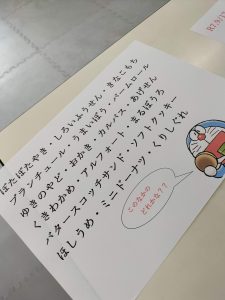 ぽたぽたやき・しろいふうせん・きなこもち
ブランチュール・うまいぼう・バームロール
ゆきのやど・おかき・カルパス・あげせん
くきわかめ・アルフォート・まるぼうろ
バタースコッチサンド・ソフトクッキー
ほしうめ・ミニドーナツ・くりしぐれ
このなかの
どれかな??